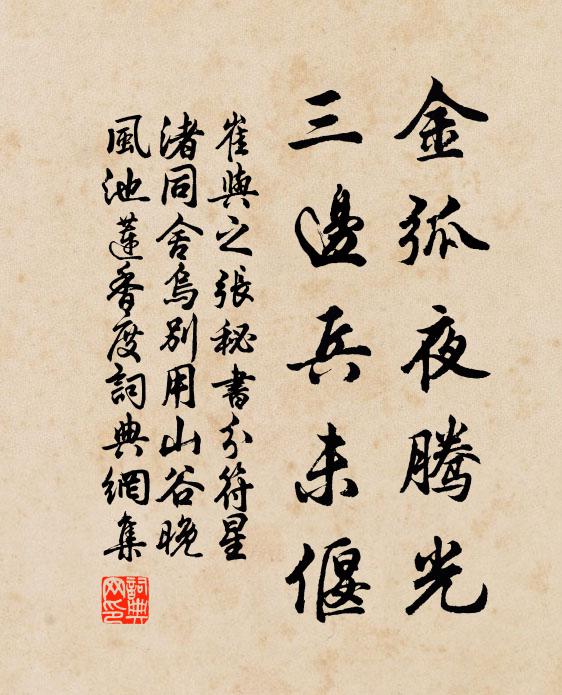 金弧夜騰光
三邊兵未偃
崔與之張秘書分符星
渚同舍烏別用山谷晚
風池蓮香度詞典網集